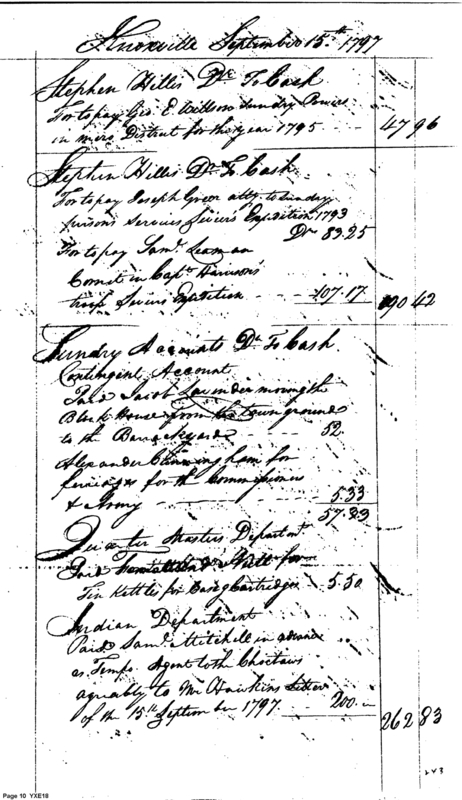 Knoxville September 15th 1797
Stephen Hillis Dr To Cash
For to pay Geo. E Willson sundry Powers
in mero District for the year 1795 47 96
Stephen Hillis Dr To Cash
For to pay Joseph Greer atty to sundry
persons services Seviers Expedition 1793
Dr 83.25
For to pay Saml Leaman
Cornet in Capt Harrisons
troop Seviers Expedition 107.17 190 42
Sundry Accounts Dr To Cash
Contingent Account
Paid Jacob Lavender moving the
Block House from the town ground
to the Barrack yard 52
Alexander Cunningham for
ferriages for the Commissioners
& Army 5.33
57.33
Quarter Masters Department
Paid
Tin Kettle for Caseg Cartridges 5.50
Indian Department
Paid Saml Mitchell in advance
as Tempo Agent to the Choctaws
agreeably to Mr Hawkins Letter
of the 15th September 1797 200
262 83
Page 10 YXE18